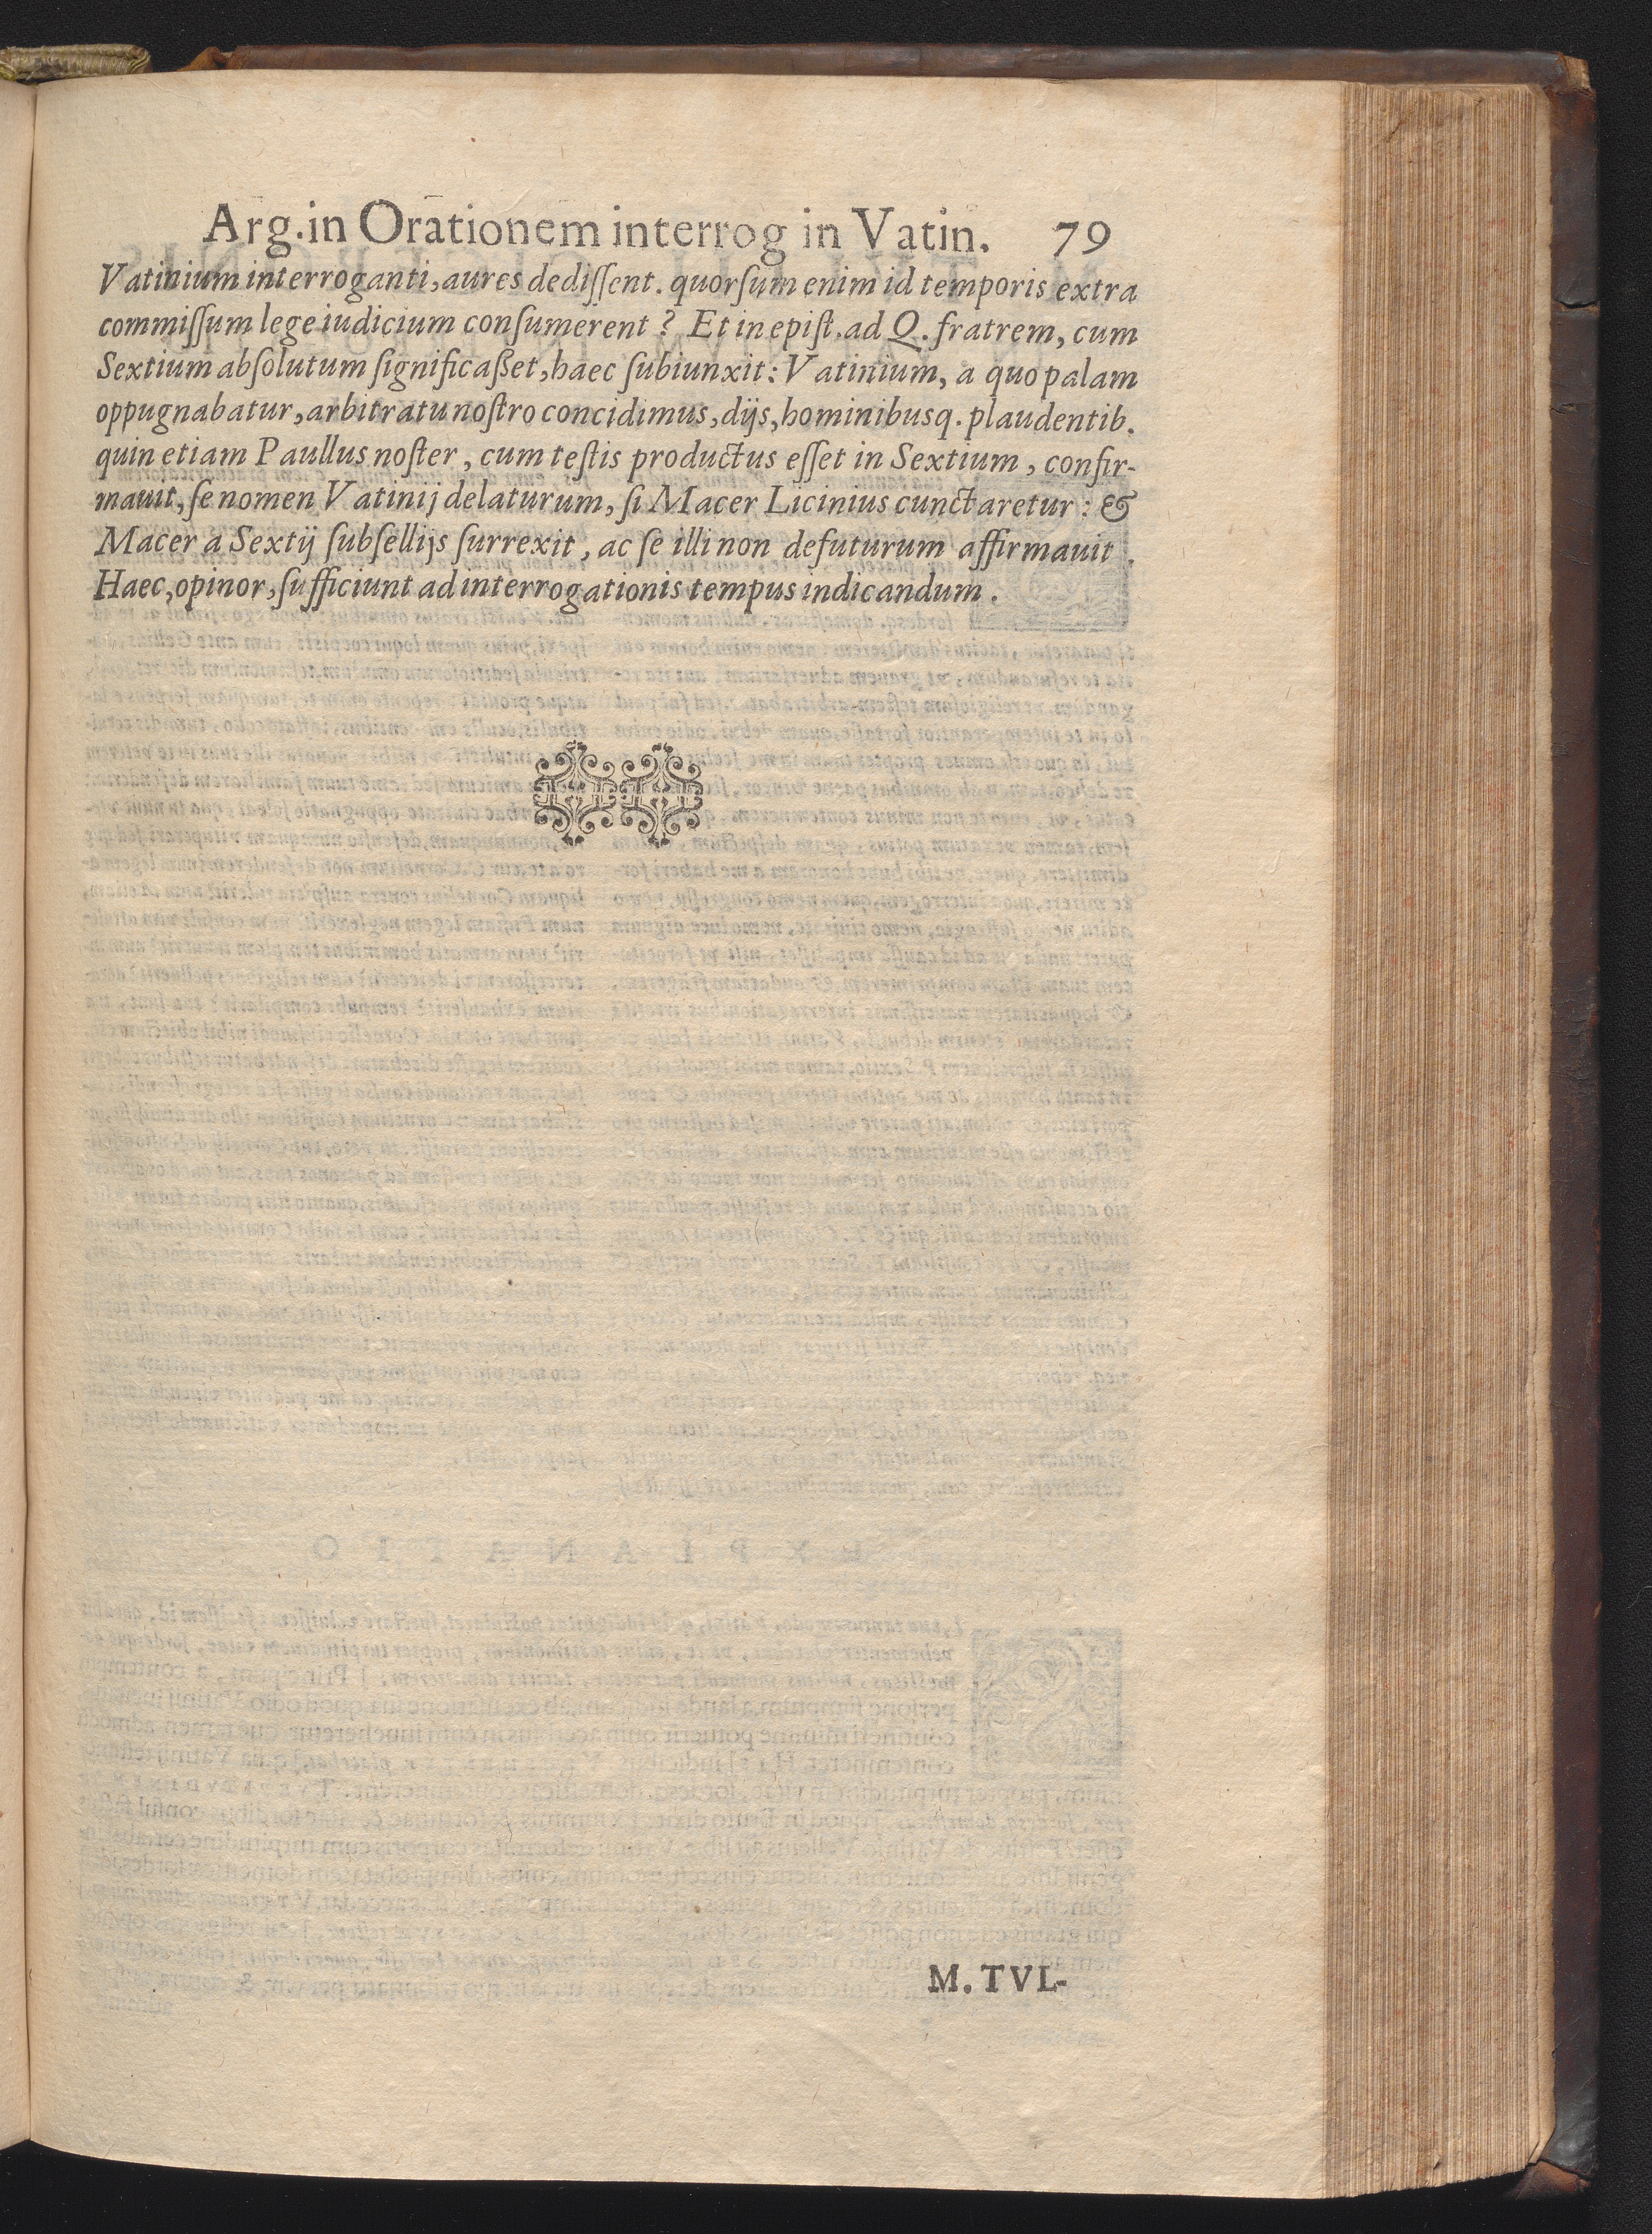 Arg. in Orationem interrog in Vatin. 79
Vatinium interroganti, aures dediſſent. quorſum enim id temporis extra
commiſſum lege iudicium conſumerent? Et in epiſt. ad Q. fratrem, cum
Sextium abſolutum ſignificaßet, haec ſubiunxit: Vatinium, a quo palam
oppugnabatur, arbitratu noſtro concidimus, dijs, hominibusq. plaudentib.
quin etiam Paullus noſter, cum teſtis productus eſſet in Sextium, confir-
mauit, ſe nomen Vatinij delaturum, ſi Macer Licinius cunctaretur: &
Macer a Sextij ſubſellijs ſurrexit, ac ſe illi non defuturum affirmauit.
Haec, opinor, ſufficiunt ad interrogationis tempus indicandum.
M. TVL-